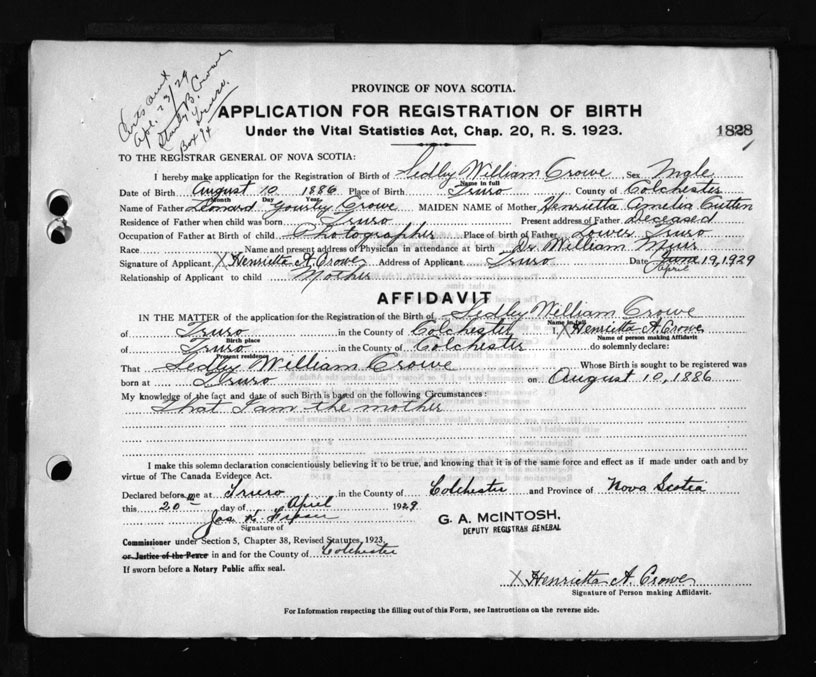 Apl. 23/29
Box 94
PROVINCE OF NOVA SCOTIA.
APPLICATION FOR REGISTRATION OF BIRTH
Under the Vital Statistics Act, Chap. 20, R. S. 1923.
1828
TO THE REGISTRAR GENERAL OF NOVA SCOTIA:
I hereby make application for the Registration of Birth of Sedley William Crowe Sex Male
Name in full
Date of Birth August 10 1886 Place of Birth Truro County of Colchester
Month Day Year
Name of Father Leonard Crowe MAIDEN NAME of Mother Henrietta Amelia Cutten
Residence of Father when child was born Truro Present address of Father Deceased
Occupation of Father at Birth of child Photographer Place of birth of Father Lower Truro
Race Name and present address of Physician in attendance at birth Dr. William Muir
Signature of Applicant X Henrietta A. Crowe Address of Applicant Truro Date June 19, 1929
April
Relationship of Applicant to child Mother
AFFIDAVIT
IN THE MATTER of the application for the Registration of the Birth of Sedley William Crowe
Name in full
of Truro in the County of Colchester I, X Henrietta A. Crowe
Birth place Name of person making Affidavit
of Truro in the County of Colchester do solemnly declare:
Present residence
That Sedley William Crowe Whose Birth is sought to be registered was
born at Truro on August 10, 1886
My knowledge of the fact and date of such Birth is based on the following Circumstances:
That I am the mother
I make this solemn declaration conscientiously believing it to be true, and knowing that it is of the same force and effect as if made under oath and by
virtue of The Canada Evidence Act.
Declared before me at Truro in the County of Colchester and Province of Nova Scotia
this 20 day of April 1929
Jas. K. Fraser
Signature of
G. A. McINTOSH,
DEPUTY REGISTRAR GENERAL
Commissioner under Section 5, Chapter 38, Revised Statutes, 1923,
or Justice of the Peace in and for the County of Colchester
If sworn before a Notary Public affix seal.
X Henrietta A. Crowe
Signature of Person making Affidavit.
For Information respecting the filling out of this Form, see Instructions on the reverse side.